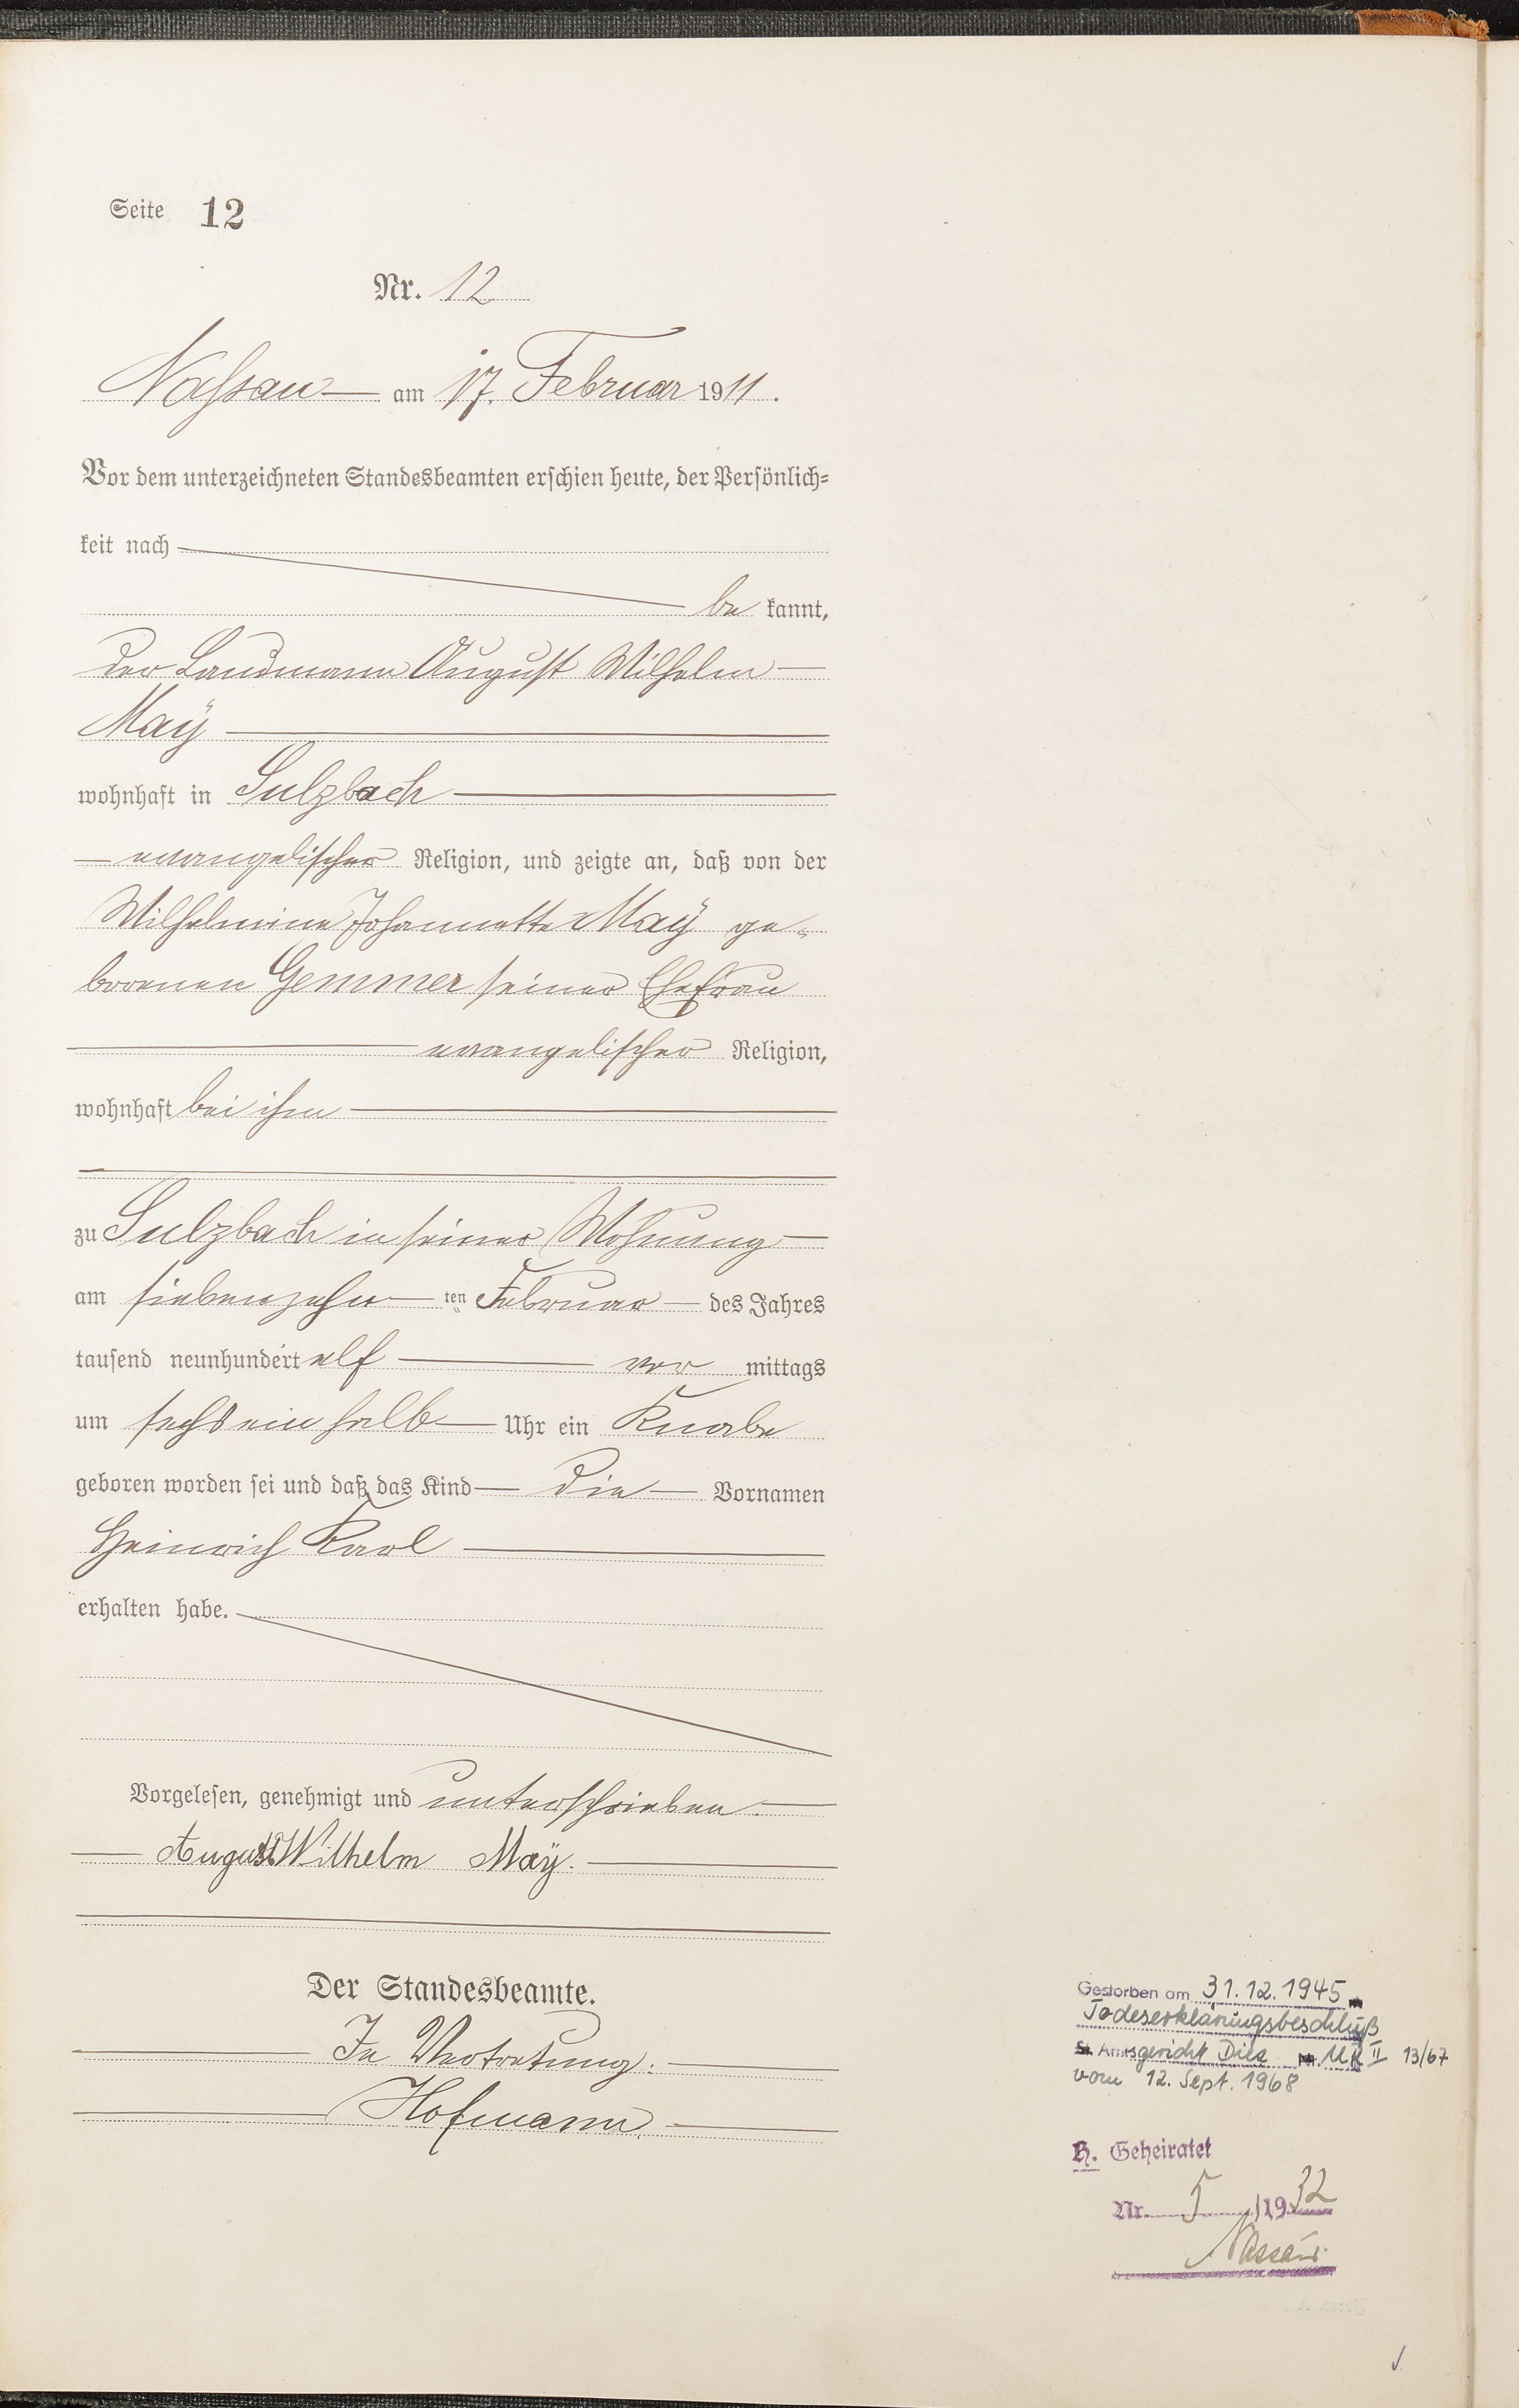 Seite 12
Nr. 12
Nassau am 17. Februar 1911.
Vor dem unterzeichneten Standesbeamten erschien heute, der Persönlich-
keit nach
be kannt,
der Landmann August Wilhelm
Maÿ
wohnhaft in Sulzbach
evangelischer Religion, und zeigte an, daß von der
Wilhelmine Johannette Maÿ ge-
borenen Gemmer seiner Ehefrau
evangelischer Religion,
wohnhaft bei ihm
zu Sulzbach in seiner Wohnung
am siebenzehn ten Februar des Jahres
tausend neunhundert elf vor mittags
um sechs ein halb Uhr ein Knabe
geboren worden sei und daß das Kind die Vornamen
Heinrich Karl
erhalten habe.
Vorgelesen, genehmigt und unterschrieben
August Wilhelm Maÿ.
Der Standesbeamte.
In Vertretung:
Hofmann
Gestorben am 31.12.1945
Todeserklärungsbeschluß
Amtsgericht Diez UR II 13/67
vom 12. Sept. 1968
B. Geheiratet
Nr. 5 /1932
Nassau